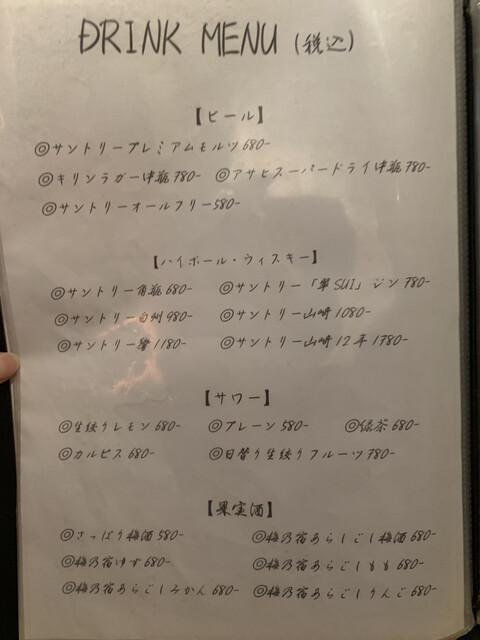 DRINK MENU (税込)
【ビール】
◎サントリープレミアムモルツ 680-
◎キリンラガー中瓶 780- ◎アサヒスーパードライ中瓶 780-
◎サントリーオールフリー 580-
【ハイボール・ウィスキー】
◎サントリー角瓶 680- ◎サントリー「翠SUI」ジン 780-
◎サントリー白州 980- ◎サントリー山崎 1080-
◎サントリー響 1180- ◎サントリー山崎12年 1780-
【サワー】
◎生絞りレモン 680- ◎プレーン 580- ◎緑茶 680-
◎カルピス 680- ◎日替り生絞りフルーツ 780-
【果実酒】
◎さっぱり梅酒 580- ◎梅乃宿あらごし梅酒 680-
◎梅乃宿ゆず 680- ◎梅乃宿あらごしもも 680-
◎梅乃宿あらごしみかん 680- ◎梅乃宿あらごしりんご 680-